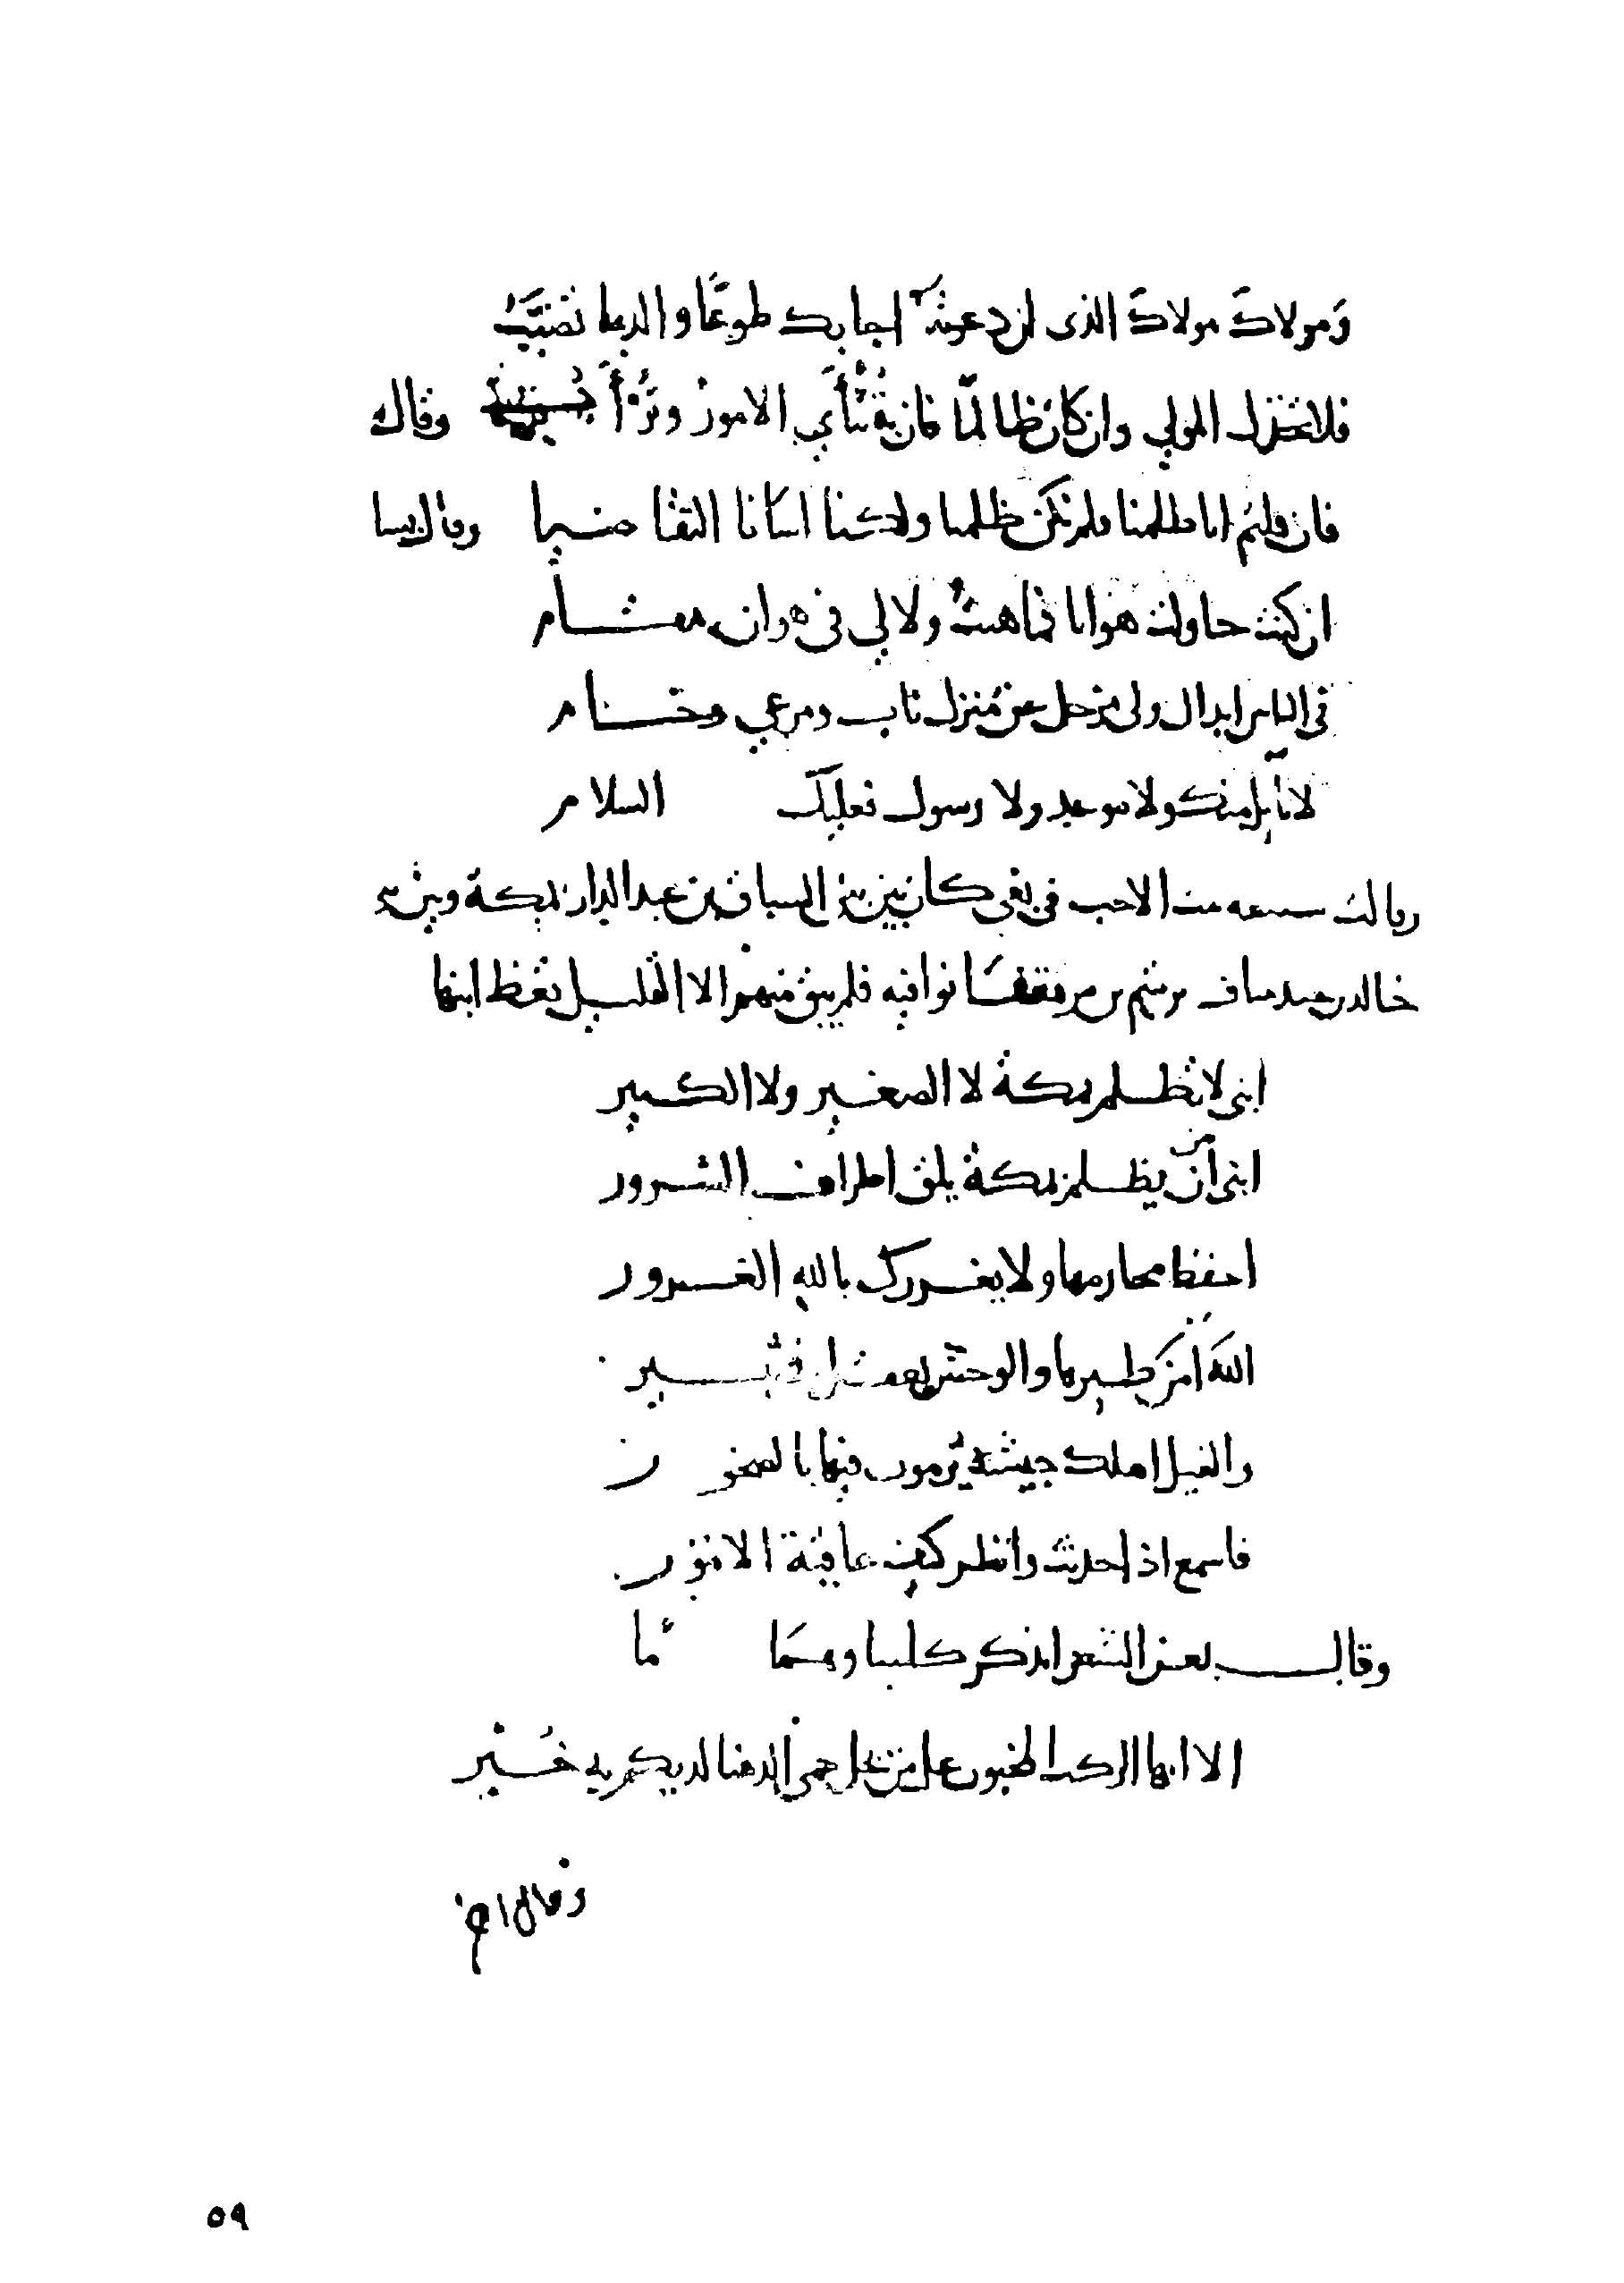 ومولاك مولاك الذي ان دعوته اجابك طوعا والدما تصبب
فلا تخذل المولى وان كان ظالما فان به تثأى الامور وترأب وقال
فان قلتم انا ظلمنا فلم نكن ظلمنا ولكنا اسأنا التقاضيا وقال
ان كنت حاولت هوانا فما هنت ولا لي في هوان مقام
في الناس ابدال ولي مزحل عن منزل ناب ومرعى وخام
لا نايل منك ولا موعد ولا رسول فعليك السلام
وقالت سبيعه بنت الاحب في بغي كان بين بني السباق بن عبد الدار بمكة وبين
خالد بن عبد مناف بن تيم بن مرة تفانوا فيه فلم يبق منهم الا القليل تعظ ابنها
ابني لا تظلم بمكة لا الصغير ولا الكبير
ابني من يظلم بمكة يلق اطراف الشرور
احفظ محارمها ولا يغررك بالله الغرور
الله امن طيرها والوحش يعقل في ثبير
والفيل اهلك جيشه يرمون فيها بالصخور
فاسمع اذا حدثت وانظر كيف عاقبة الامور
وقال بعض الشعرا يذكر كليبا
الا ايها الركب المخبون هل من نخل حمى الدهنا لديكم به خبر
وقال اخر
٥٩